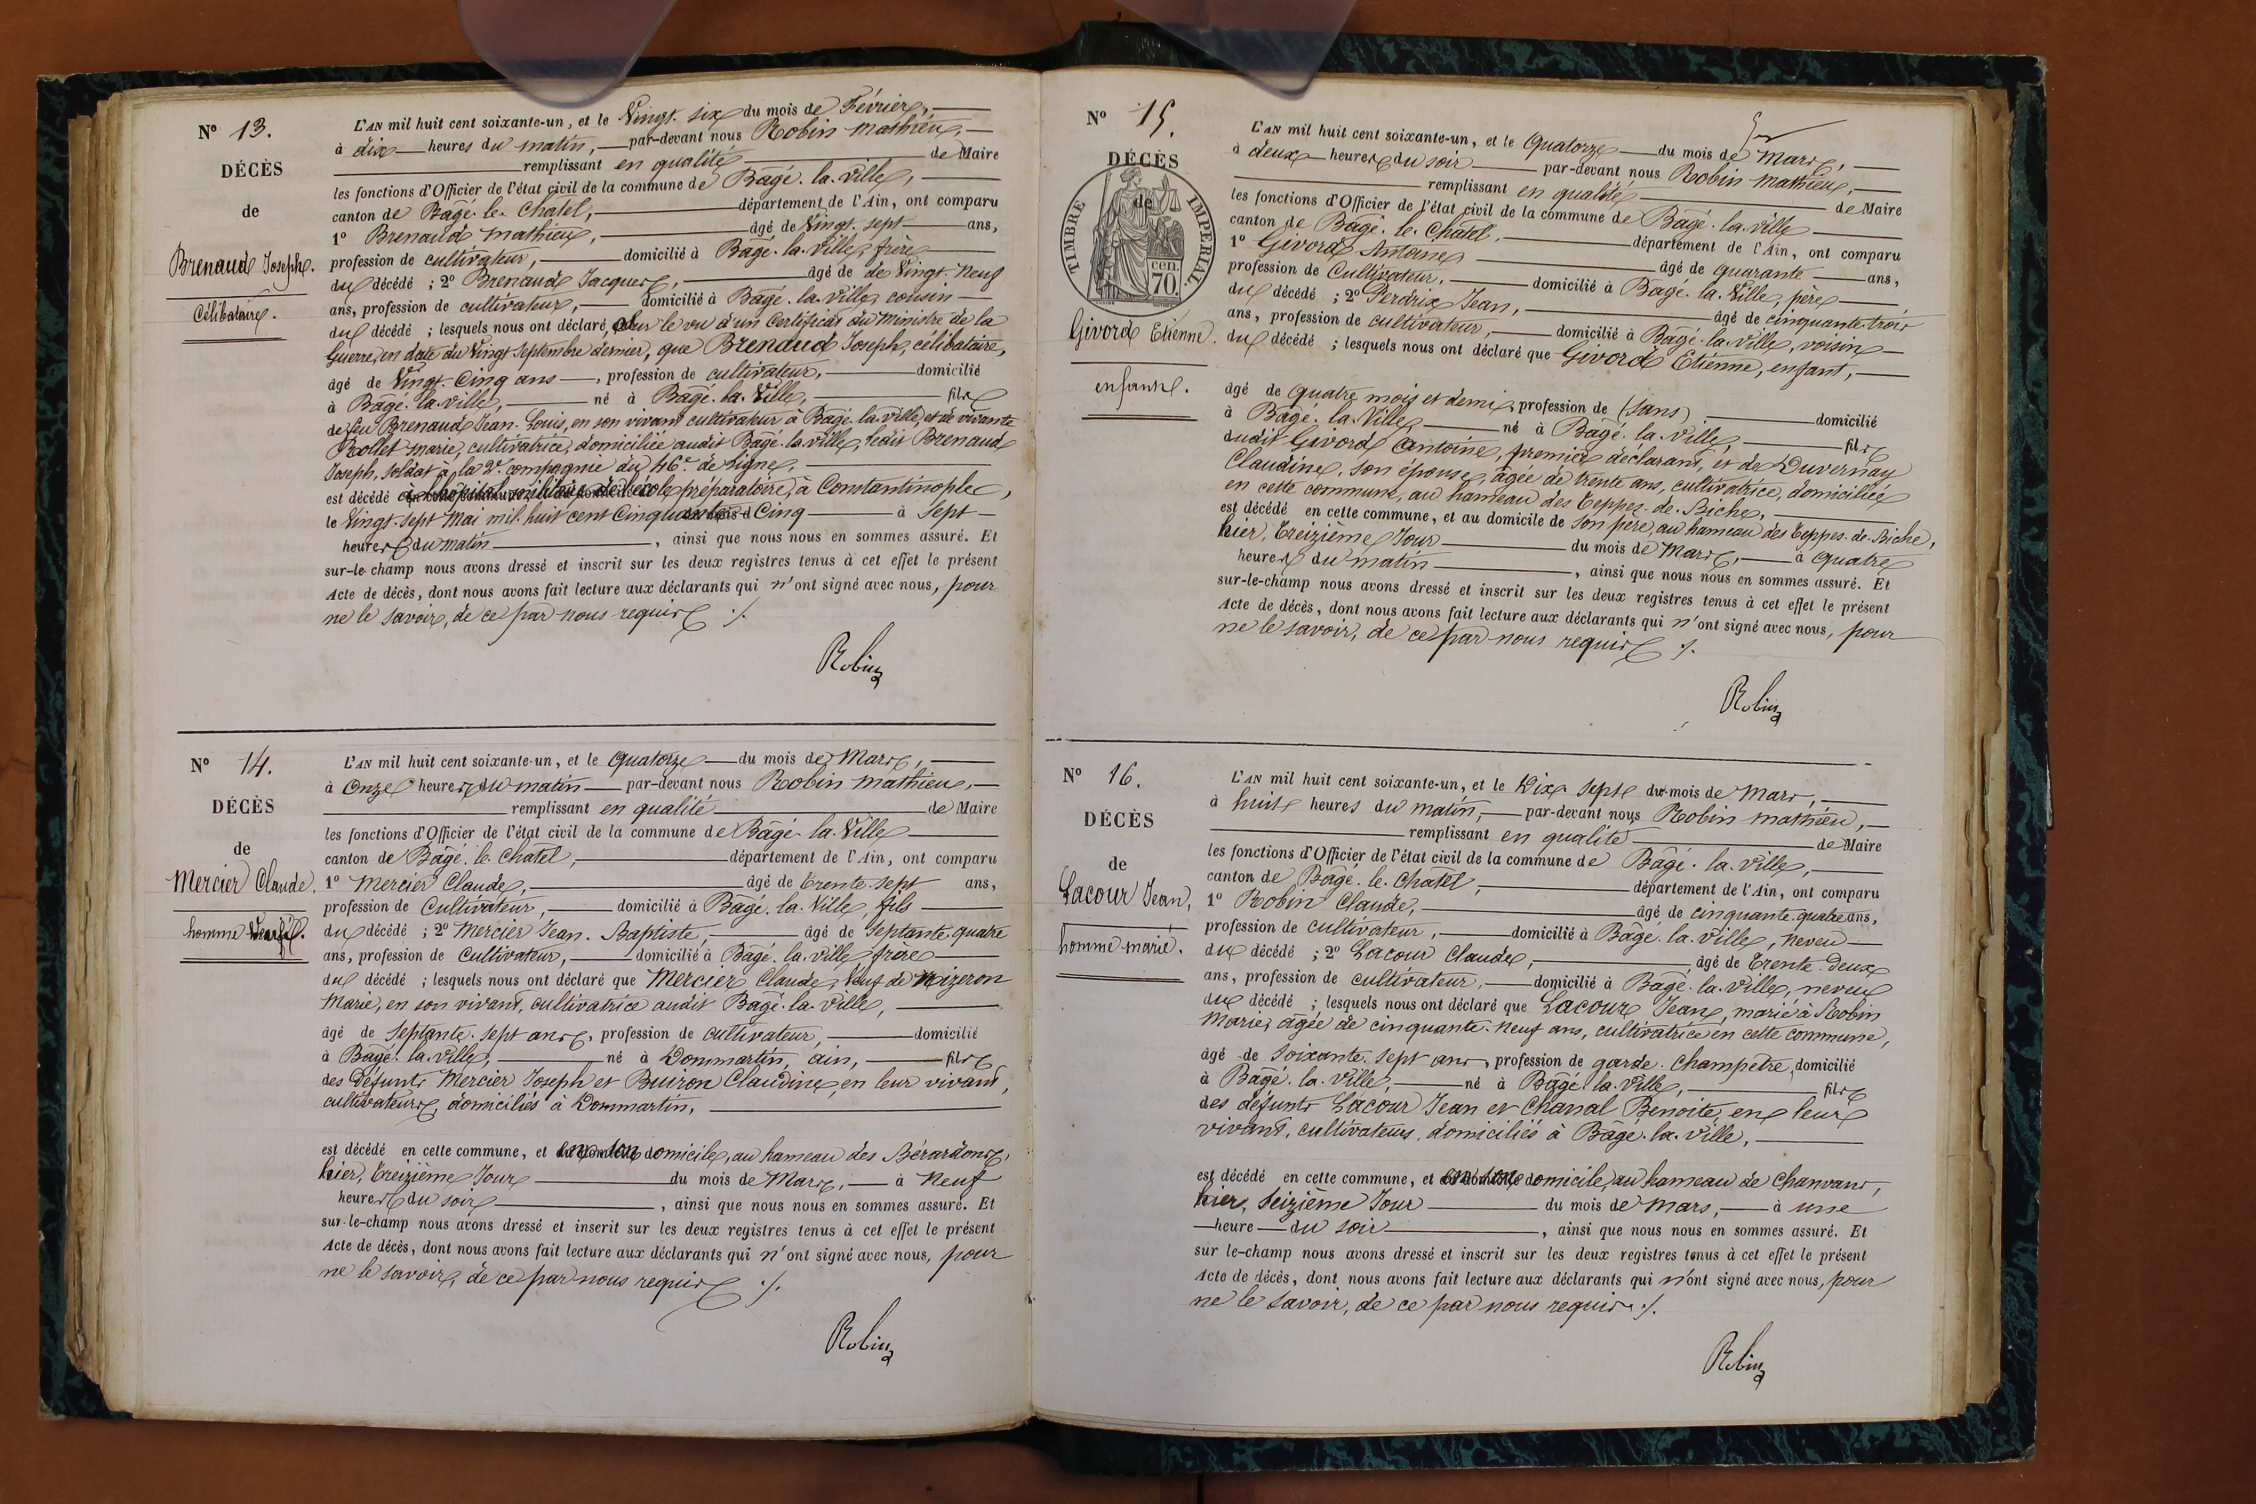 Nº 13.
DÉCÈS
de
Brenaud Joseph.
Célibataire.
L'AN mil huit cent soixante-un, et le Vingt-six du mois de Février,
à dix heures du matin, par-devant nous Robin Mathieu,
remplissant en qualité de Maire
les fonctions d'Officier de l'état civil de la commune de Bâgé-la-Ville,
canton de Bâgé-le-Chatel, département de l'Ain, ont comparu
1º Brenaud Mathieu, âgé de Vingt-sept ans,
profession de cultivateur, domicilié à Bâgé-la-Ville, frère
du décédé ; 2º Brenaud Jacques, âgé de de Vingt-neuf
ans, profession de cultivateur, domicilié à Bâgé-la-Ville, cousin
du décédé ; lesquels nous ont déclaré, sur le vu d'un Certificat du Ministre de la
Guerre, en date du Vingt Septembre dernier, que Brenaud Joseph, célibataire,
âgé de Vingt-Cinq ans, profession de cultivateur, domicilié
à Bâgé-la-Ville, né à Bâgé-la-Ville, fils
de feu Brenaud Jean-Louis, en son vivant cultivateur à Bâgé-la-Ville, et de vivante
Rollet Marie, cultivatrice, domiciliée audit Bâgé-la-Ville, ledit Brenaud
Joseph, soldat à la 2e compagnie du 46e de ligne,
est décédé à l'hôpital militaire de l'école préparatoire, à Constantinople,
le Vingt-sept Mai mil-huit cent Cinquante Cinq à Sept
heures du matin, ainsi que nous nous en sommes assuré. Et
sur-le-champ nous avons dressé et inscrit sur les deux registres tenus à cet effet le présent
Acte de décès, dont nous avons fait lecture aux déclarants qui n'ont signé avec nous, pour
ne le savoir, de ce par nous requis ./.
Robin
Nº 14.
DÉCÈS
de
Mercier Claude.
homme Veuf.
L'AN mil huit cent soixante-un, et le quatorze du mois de Mars,
à Onze heures du matin par-devant nous Robin Mathieu,
remplissant en qualité de Maire
les fonctions d'Officier de l'état civil de la commune de Bâgé-la-Ville
canton de Bâgé-le-Chatel, département de l'Ain, ont comparu
1º Mercier Claude, âgé de Trente-sept ans,
profession de Cultivateur, domicilié à Bâgé-la-Ville, fils
du décédé ; 2º Mercier Jean-Baptiste, âgé de Septante-quatre
ans, profession de Cultivateur, domicilié à Bâgé-la-Ville, frère
du décédé ; lesquels nous ont déclaré que Mercier Claude, Veuf de Mizeron
Marie, en son vivant, cultivatrice audit Bâgé-la-Ville,
âgé de Septante-sept ans, profession de cultivateur, domicilié
à Bâgé-la-Ville, né à Dommartin, ain, fils
des défunts Mercier Joseph et Buiron Claudine, en leur vivant,
cultivateurs, domiciliés à Dommartin,
est décédé en cette commune, et en son domicile, au hameau des Bérardons,
hier, Treizième Jour du mois de Mars, à Neuf
heures du soir, ainsi que nous nous en sommes assuré. Et
sur-le-champ nous avons dressé et inscrit sur les deux registres tenus à cet effet le présent
Acte de décès, dont nous avons fait lecture aux déclarants qui n'ont signé avec nous, pour
ne le savoir, de ce par nous requis ./.
Robin
Nº 15.
DÉCÈS
de
TIMBRE IMPERIAL.
cen.
70.
Givord Etienne.
enfant.
L'AN mil huit cent soixante-un, et le Quatorze du mois de Mars,
à deux heures du soir par-devant nous Robin Mathieu,
remplissant en qualité de Maire
les fonctions d'Officier de l'état civil de la commune de Bâgé-la-Ville
canton de Bâgé-le-Châtel, département de l'Ain, ont comparu
1º Givord Antoine, âgé de quarante ans,
profession de Cultivateur, domicilié à Bâgé-la-Ville, père
du décédé ; 2º Perdrix Jean, âgé de cinquante-trois
ans, profession de cultivateur, domicilié à Bâgé-la-Ville, voisin
du décédé ; lesquels nous ont déclaré que Givord Etienne, enfant,
âgé de quatre mois et demi, profession de (sans) domicilié
à Bâgé-la-Ville, né à Bâgé-la-Ville, fils
dudit Givord Antoine, premier déclarant, et de Duvernay
Claudine, son épouse, âgée de trente ans, cultivatrice, domiciliée
en cette commune, au hameau des Teppes-de-Biche,
est décédé en cette commune, et au domicile de son père, au hameau des Teppes-de-Biche,
hier, Treizième Jour du mois de Mars, à Quatre
heures du matin, ainsi que nous nous en sommes assuré. Et
sur-le-champ nous avons dressé et inscrit sur les deux registres tenus à cet effet le présent
Acte de décès, dont nous avons fait lecture aux déclarants qui n'ont signé avec nous, pour
ne le savoir, de ce par nous requis ./.
Robin
Nº 16.
DÉCÈS
de
Lacour Jean,
homme marié.
L'AN mil huit cent soixante-un, et le Dix-Sept du mois de Mars,
à huit heures du matin, par-devant nous Robin Mathieu,
remplissant en qualité de Maire
les fonctions d'Officier de l'état civil de la commune de Bâgé-la-Ville,
canton de Bâgé-le-Châtel, département de l'Ain, ont comparu
1º Robin Claude, âgé de cinquante-quatre ans,
profession de cultivateur, domicilié à Bâgé-la-Ville, neveu
du décédé ; 2º Lacour Claude, âgé de Trente-Deux
ans, profession de cultivateur, domicilié à Bâgé-la-Ville, neveu
du décédé ; lesquels nous ont déclaré que Lacour Jean, marié à Robin
Marie, âgée de cinquante-neuf ans, cultivatrice en cette commune,
âgé de soixante-sept ans, profession de garde-champêtre, domicilié
à Bâgé-la-Ville, né à Bâgé-la-Ville, fils
des défunts Lacour Jean et Chanal Benoite, en leur
vivant, cultivateurs, domiciliés à Bâgé-la-Ville,
est décédé en cette commune, et en son domicile, au hameau de Chanvans,
hier, Seizième Jour du mois de Mars, à une
heure du soir, ainsi que nous nous en sommes assuré. Et
sur le-champ nous avons dressé et inscrit sur les deux registres tenus à cet effet le présent
Acte de décès, dont nous avons fait lecture aux déclarants qui n'ont signé avec nous, pour
ne le savoir, de ce par nous requis ./.
Robin